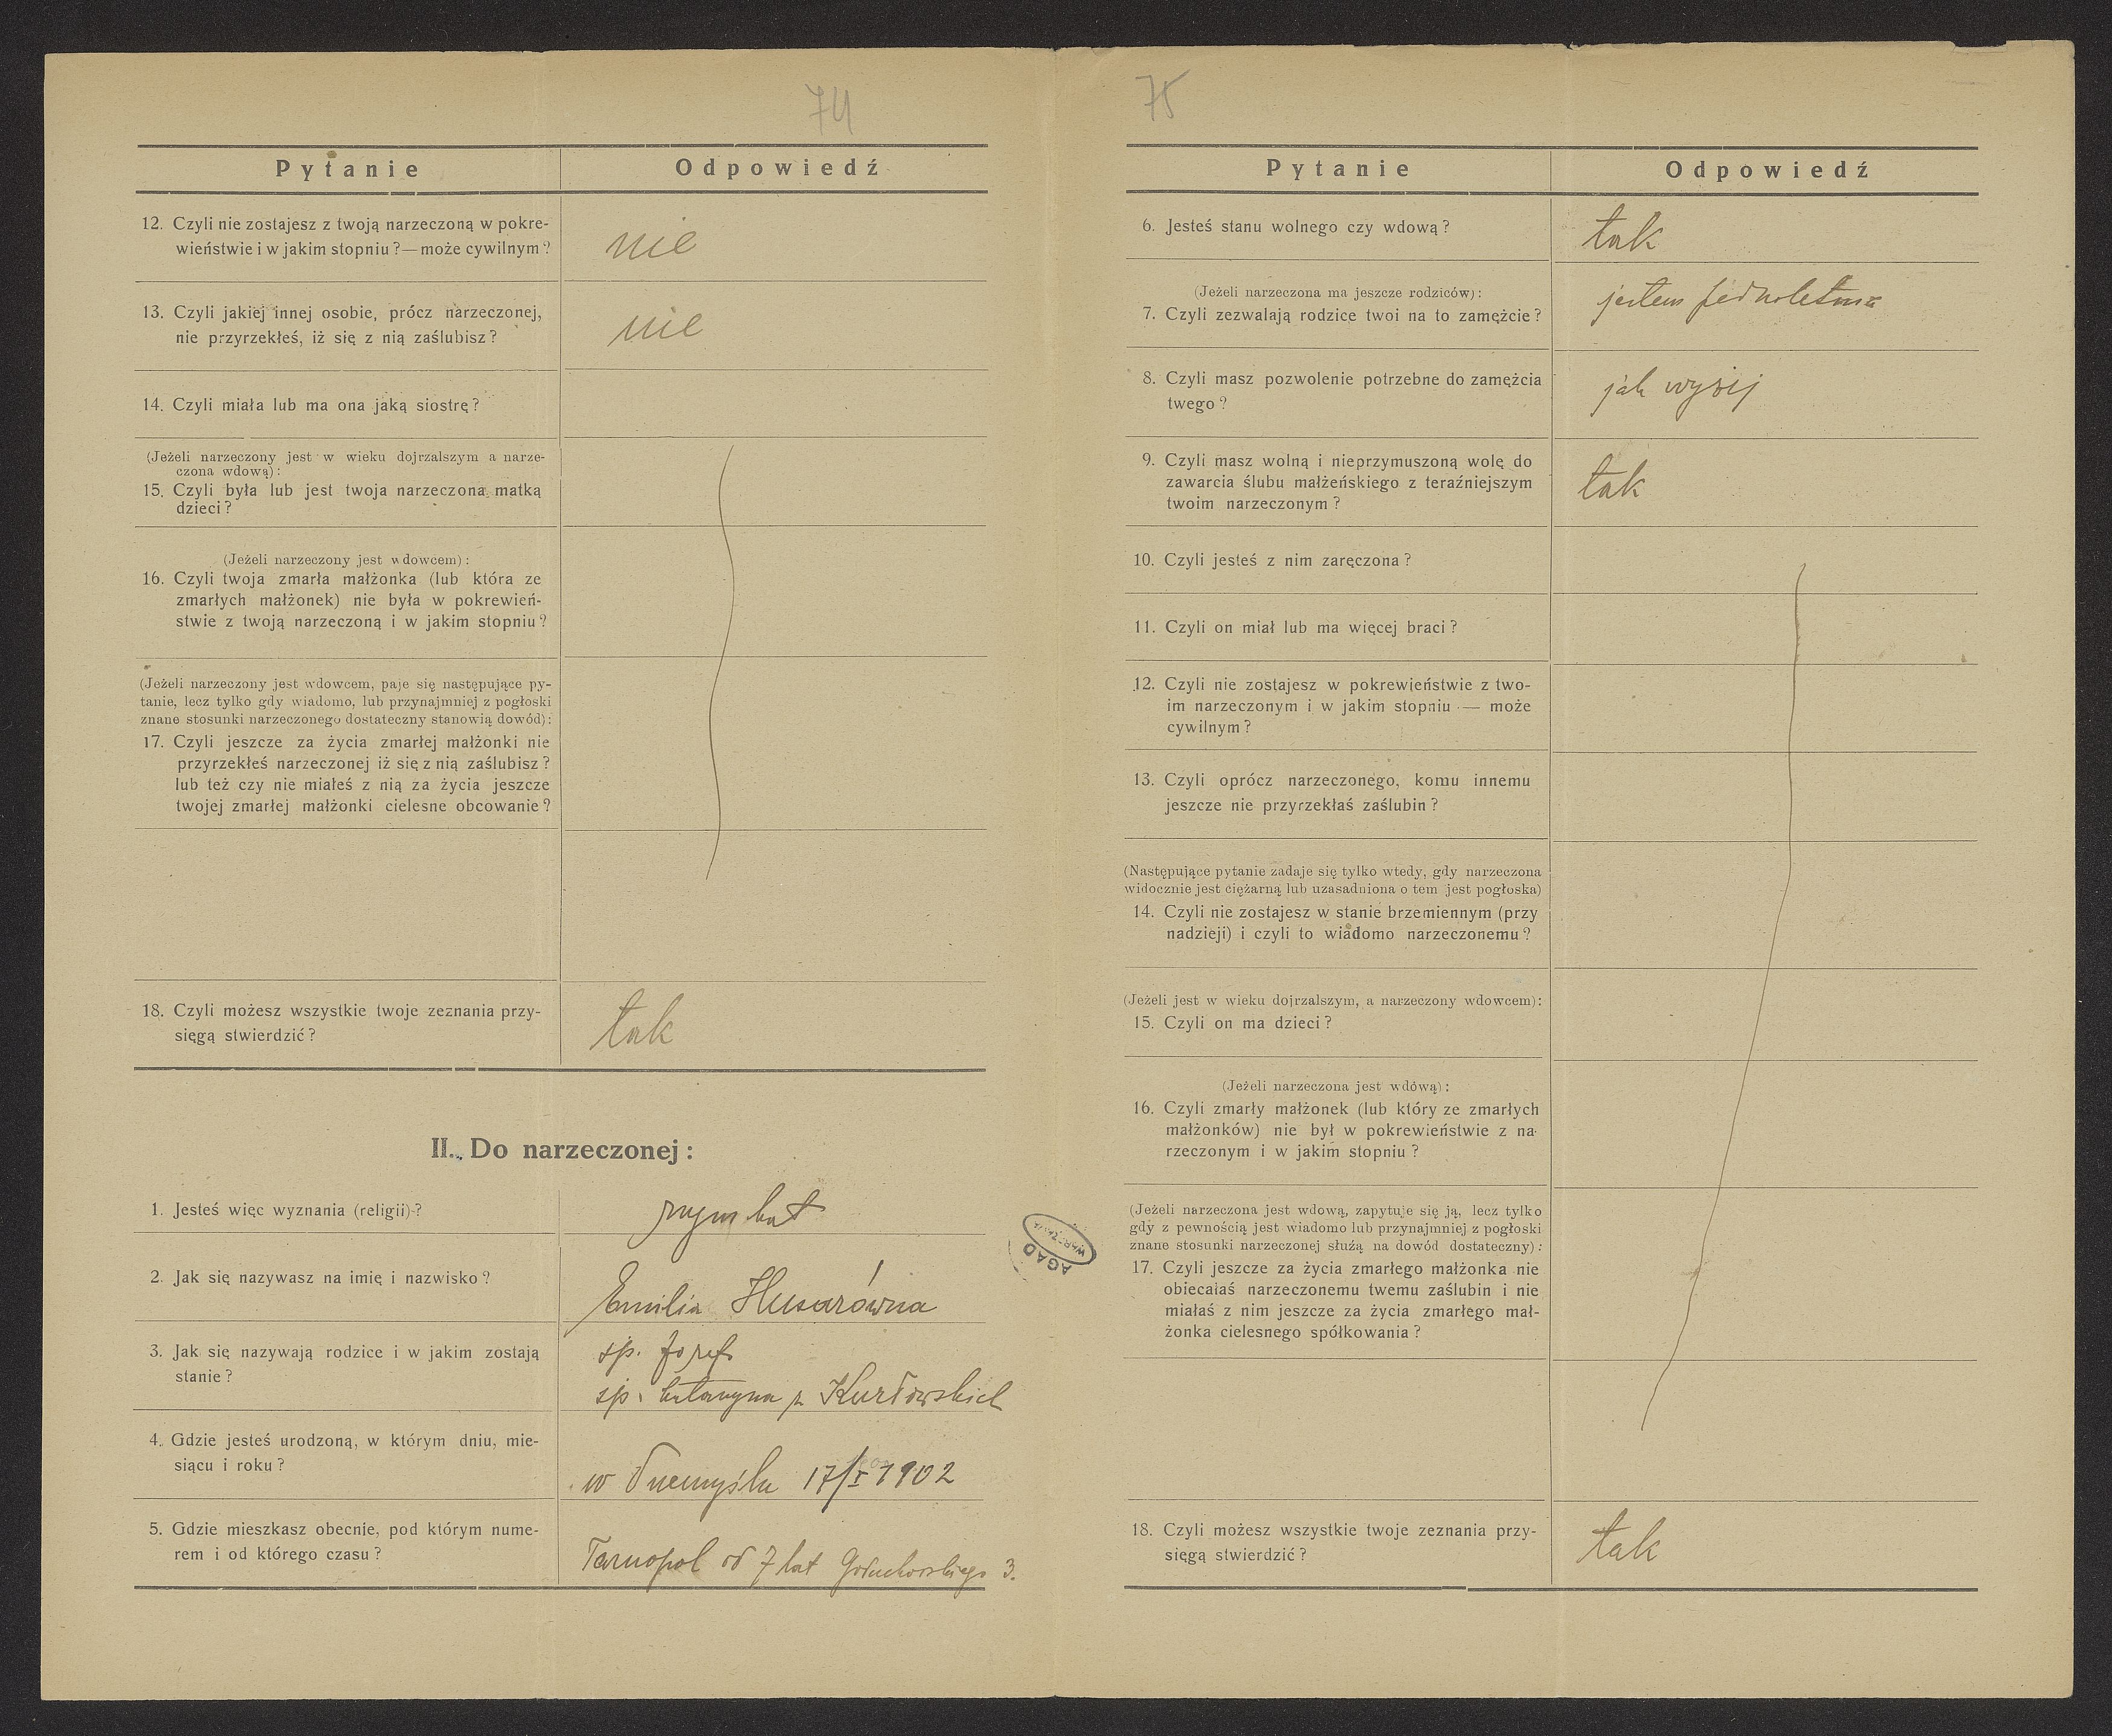 74
Pytanie Odpowiedź
12. Czyli nie zostajesz z twoją narzeczoną w pokre-
wieństwie i w jakim stopniu? — może cywilnym?
nie
13. Czyli jakiej innej osobie, prócz narzeczonej,
nie przyrzekłeś, iż się z nią zaślubisz?
nie
14. Czyli miała lub ma ona jaką siostrę?
(Jeżeli narzeczony jest w wieku dojrzalszym a narze-
czona wdową):
15. Czyli była lub jest twoja narzeczona matką
dzieci?
(Jeżeli narzeczony jest wdowcem):
16. Czyli twoja zmarła małżonka (lub która ze
zmarłych małżonek) nie była w pokrewień-
stwie z twoją narzeczoną i w jakim stopniu?
(Jeżeli narzeczony jest wdowcem, paje się następujące py-
tanie, lecz tylko gdy wiadomo, lub przynajmniej z pogłoski
znane stosunki narzeczonego dostateczny stanowią dowód):
17. Czyli jeszcze za życia zmarłej małżonki nie
przyrzekłeś narzeczonej iż się z nią zaślubisz?
lub też czy nie miałeś z nią za życia jeszcze
twojej zmarłej małżonki cielesne obcowanie?
18. Czyli możesz wszystkie twoje zeznania przy-
sięgą stwierdzić?
tak
II. Do narzeczonej:
1. Jesteś więc wyznania (religii)?
rzym kat
2. Jak się nazywasz na imię i nazwisko?
Emilia Husarówna
3. Jak się nazywają rodzice i w jakim zostają
stanie?
sp. Józef
sp. Katarzyna z Kurłowskich
4. Gdzie jesteś urodzoną, w którym dniu, mie-
siącu i roku?
w Przemyślu 17/I 1902
5. Gdzie mieszkasz obecnie, pod którym nume-
rem i od którego czasu?
Tarnopol od 7 lat Gołuchowskiego 3.
AGAD
WARSZAWA
75
Pytanie Odpowiedź
6. Jesteś stanu wolnego czy wdową?
tak
(Jeżeli narzeczona ma jeszcze rodziców):
7. Czyli zezwalają rodzice twoi na to zamęźcie?
jestem pełnoletnia
8. Czyli masz pozwolenie potrzebne do zamężcia
twego?
jak wyżej
9. Czyli masz wolną i nieprzymuszoną wolę do
zawarcia ślubu małżeńskiego z teraźniejszym
twoim narzeczonym?
tak
10. Czyli jesteś z nim zaręczona?
11. Czyli on miał lub ma więcej braci?
12. Czyli nie zostajesz w pokrewieństwie z two-
im narzeczonym i w jakim stopniu — może
cywilnym?
13. Czyli oprócz narzeczonego, komu innemu
jeszcze nie przyrzekłaś zaślubin?
(Następujące pytanie zadaje się tylko wtedy, gdy narzeczona
widocznie jest ciężarną lub uzasadniona o tem jest pogłoska)
14. Czyli nie zostajesz w stanie brzemiennym (przy
nadzieji) i czyli to wiadomo narzeczonemu?
(Jeżeli jest w wieku dojrzalszym, a narzeczony wdowcem):
15. Czyli on ma dzieci?
(Jeżeli narzeczona jest wdową):
16. Czyli zmarły małżonek (lub który ze zmarłych
małżonków) nie był w pokrewieństwie z na-
rzeczonym i w jakim stopniu?
(Jeżeli narzeczona jest wdową, zapytuje się ją, lecz tylko
gdy z pewnością jest wiadomo lub przynajmniej z pogłoski
znane stosunki narzeczonej służą na dowód dostateczny):
17. Czyli jeszcze za życia zmarłego małżonka nie
obiecałaś narzeczonemu twemu zaślubin i nie
miałaś z nim jeszcze za życia zmarłego mał-
żonka cielesnego spółkowania?
18. Czyli możesz wszystkie twoje zeznania przy-
sięgą stwierdzić?
tak